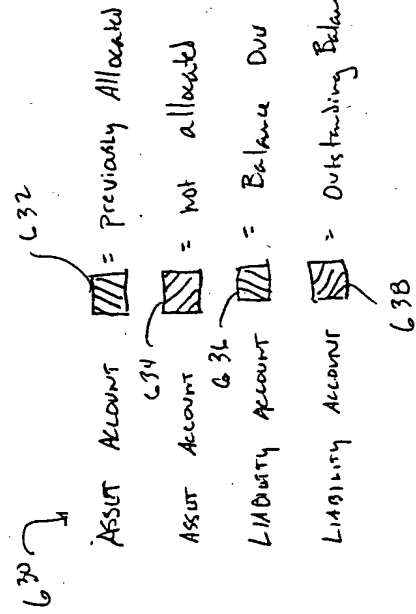 630
632
ASSET ACCOUNT = Previously Allocated
634
ASSET ACCOUNT = not allocated
636
LIABILITY ACCOUNT = Balance Due
LIABILITY ACCOUNT = Outstanding Balan
638